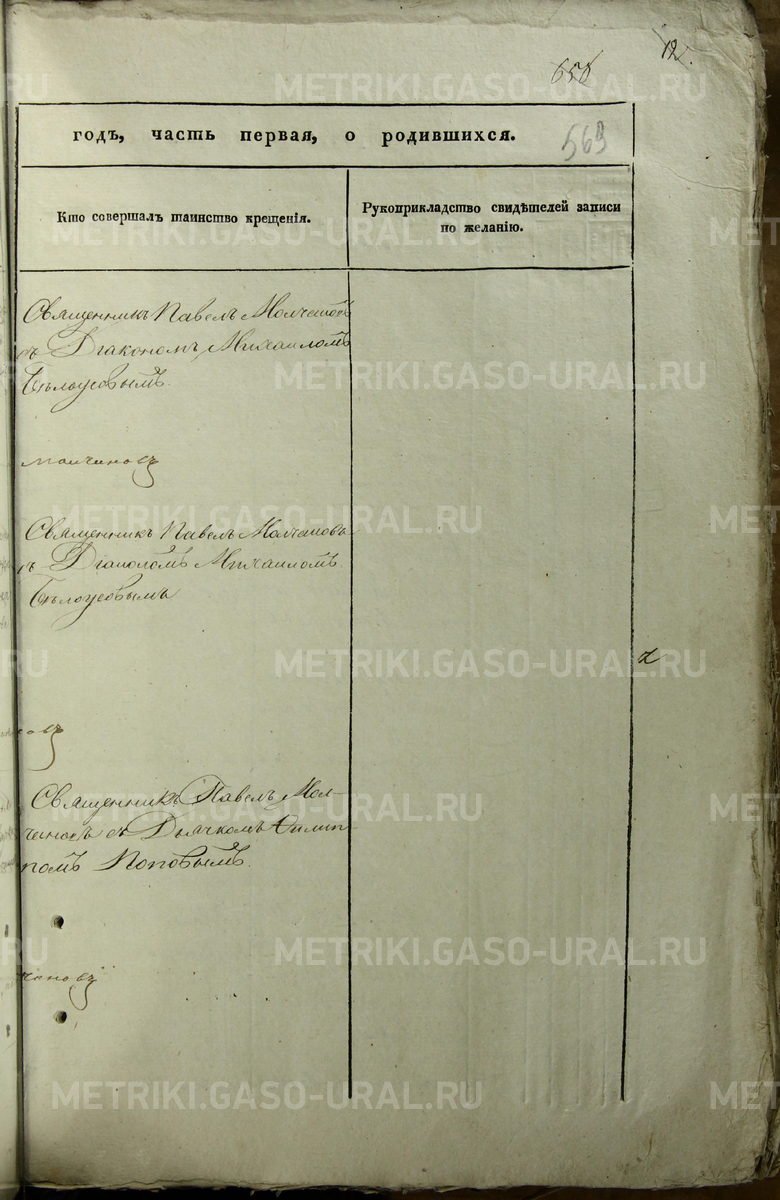 12.
658
годъ, часть первая, о родившихся.
569
Кто совершалъ таинство крещенія.
Рукоприкладство свидѣтелей записи
по желанію.
Священникъ Павелъ Молчановъ
съ Діакономъ Михаиломъ
Бѣлоусовымъ.
молчановъ
Священникъ Павелъ Молчановъ
съ Діакономъ Михаиломъ
Бѣлоусовымъ
овъ
Священникъ Павелъ Мол-
чановъ съ Дьячкомъ Филип-
помъ Поповымъ.
чановъ
METRIKI.GASO-URAL.RU